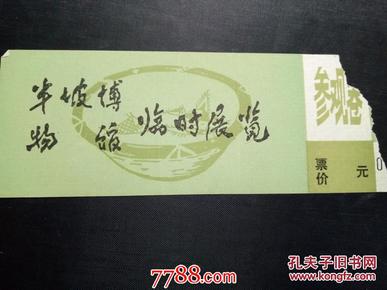 半坡博
物馆 临时展览
参观卷
票价 元
0
7788.com
孔夫子旧书网